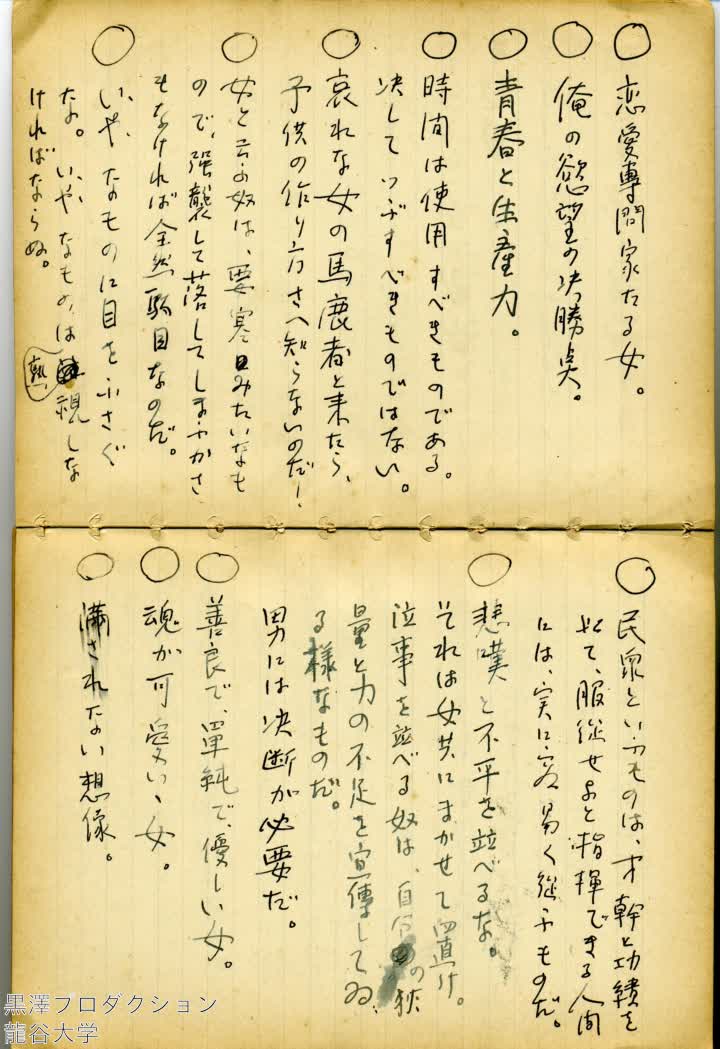 ○ 恋愛専問家たる女。
○ 俺の慾望の決勝点。
○ 青春と生産力。
○ 時間は使用すべきものである。
決してつぶすべきものではない。
○ 哀れな女の馬鹿者と来たら、
子供の作り方さへ知らないのだ!
○ 女と云ふ奴は、要塞みたいなも
ので、強襲して落してしまふかさ
もなければ全然駄目なのだ。
○ いやなものに目をふさぐ
な。いやなものは熟視しな
ければならぬ。
○ 民衆といふものは、才幹と功績を
以て、服従せよと指揮できる人間
には、実に容易く従ふものだ。
○ 悲嘆と不平を並べるな。
それは女共にまかせて置け。
泣事を並べる奴は、自分の狭
量と力の不足を宣傳してゐ
る様なものだ。
男には決断が必要だ。
○ 善良で、単純で、優しい女。
○ 魂が可愛いゝ女。
○ 満されない想像。
黒澤プロダクション
龍谷大学